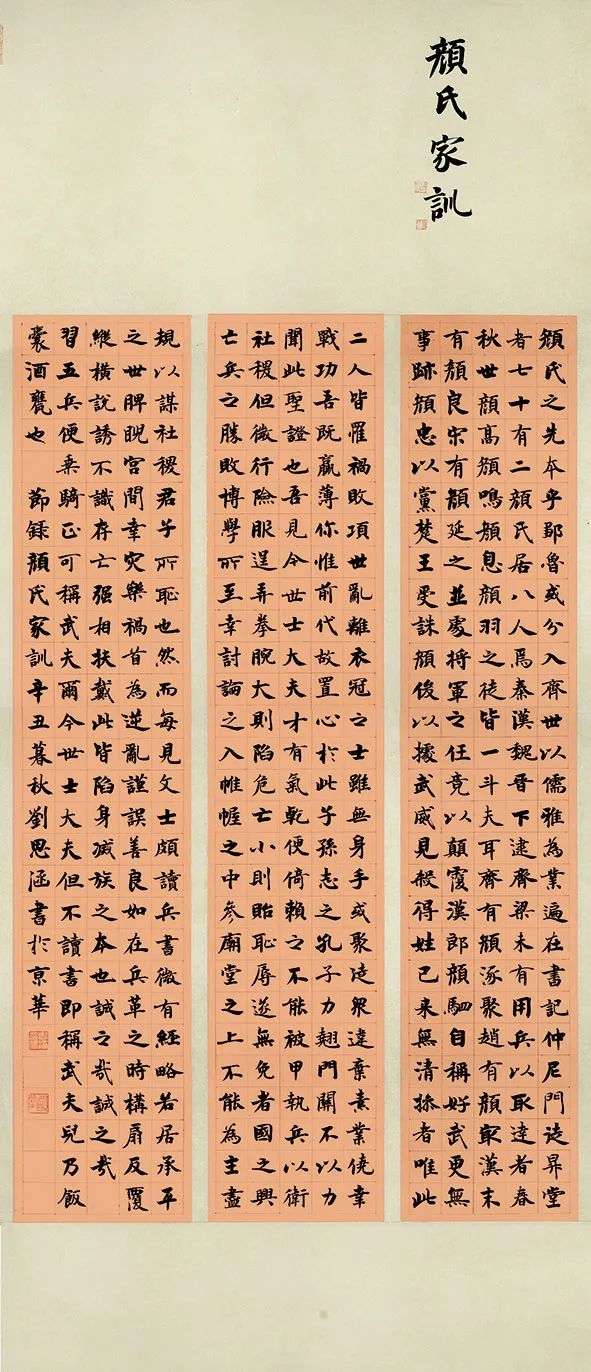 顏氏家訓
顏氏之先本乎鄒魯或分入齊世以儒雅為業遍在書記仲尼門徒昇堂
者七十有二顏氏居八人焉秦漢魏晉下逮齊梁未有用兵以取達者春
秋世顏高顏鳴顏息顏羽之徒皆一斗夫耳齊有顏涿聚趙有顏冣漢末
有顏良宋有顏延之並處將軍之任竟以顛覆漢郎顏駟自稱好武更無
事跡顏忠以黨楚王受誅顏俊以據武威見殺得姓已来無清操者唯此
二人皆罹禍敗項世亂離衣冠之士雖無身手或聚徒眾違棄素業僥幸
戰功吾既羸薄你惟前代故置心於此子孫志之孔子力翹門關不以力
聞此聖證也吾見今世士大夫才有氣乾便倚賴之不能被甲執兵以衛
社稷但微行險服逞弄拳腕大則陷危亡小則貽恥辱遂無免者國之興
亡兵之勝敗博學所至幸討論之入帷幄之中參廟堂之上不能為主盡
規以謀社稷君子所恥也然而每見文士頗讀兵書微有經略若居承平
之世睥睨宮間幸灾樂禍首為逆亂謹誤善良如在兵革之時構扇反覆
縱橫說誘不識存亡强相扶戴此皆陷身滅族之本也誡之哉誡之哉
習五兵便乘騎正可稱武夫爾今世士大夫但不讀書即稱武夫兒乃飯
囊酒甕也 節録顏氏家訓辛丑暮秋劉思涵書於京華